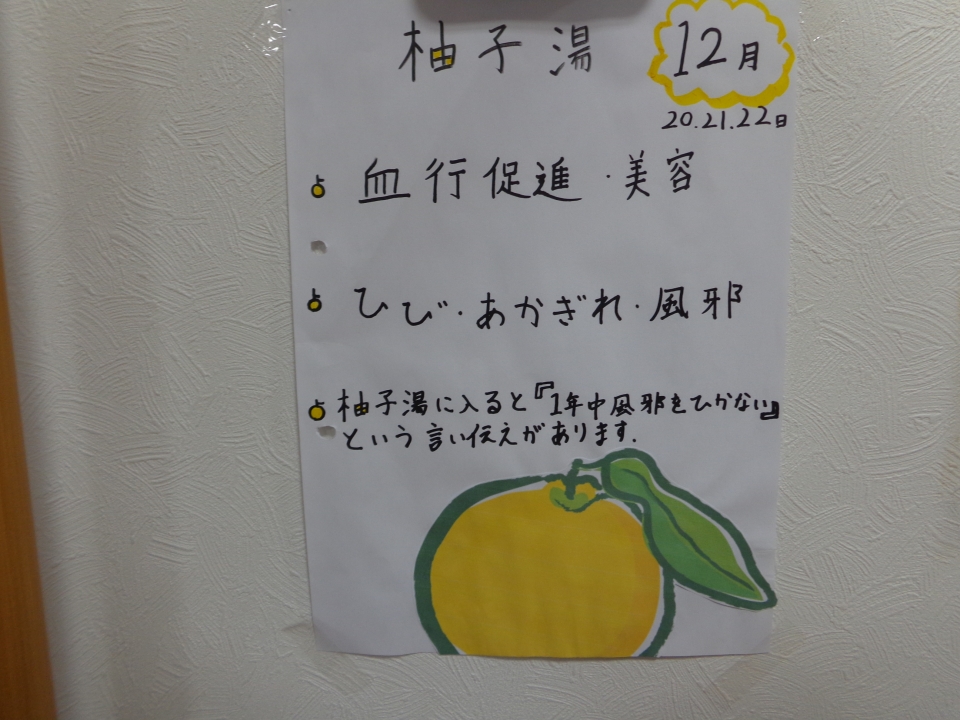 柚子湯
12月
20.21.22日
血行促進・美容
ひび・あかぎれ・風邪
柚子湯に入ると『1年中風邪をひかない』
という言い伝えがあります.